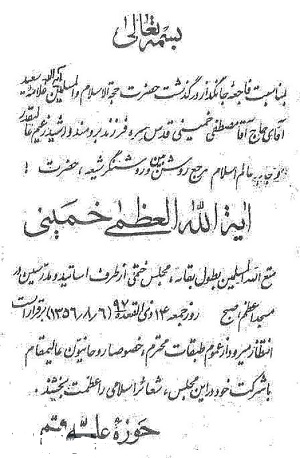 بسمه تعالی
بمناسبت فاجعهٔ جانگداز درگذشت حضرت حجة الاسلام والمسلمین علامه سعید
آقای حاج آقا مصطفی خمینی قدس سره فرزند برومند و ارشید زعیم عالیقدر
عالم اسلام مرجع روشن بین و روشنگر شیعه ، حضرت :
آیة الله العظمی خمینی
متع الله المسلمین بطول بقائه ، مجلس ختمی از طرف اساتید و مدرسین در
مسجد اعظم صبح روز جمعه ۱۴ ذی القعده ۹۷ (۱۳۵۶/۸/۶) برقرار است
انتظار میرود از عموم طبقات محترم ، خصوصا روحانیون عالیمقام
با شرکت خود در این مجلس ، شعائر اسلامی را عظمت بخشند .
حوزه علمیه قم